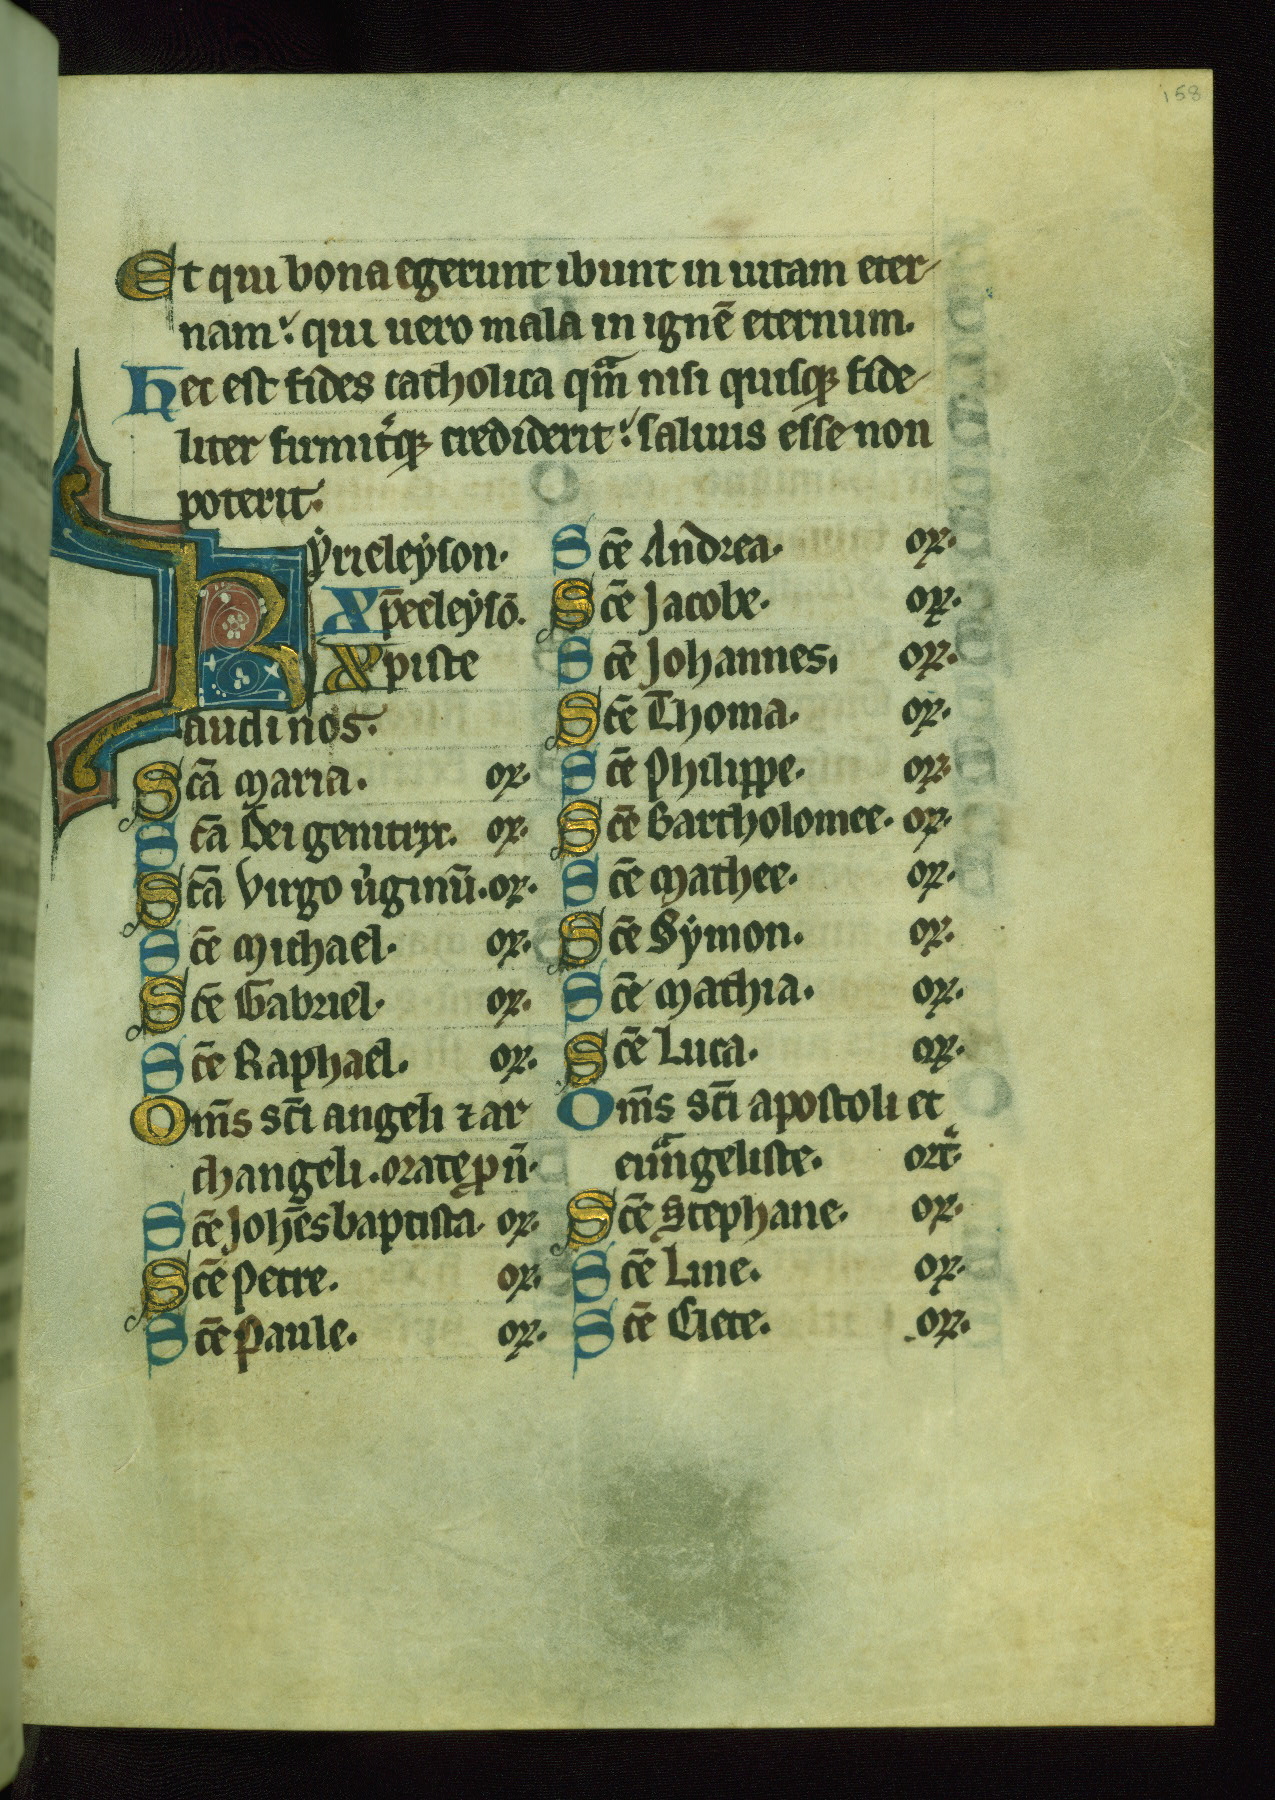 158
Et qui bona egerunt ibunt in uitam eter-
nam: qui uero mala in ignē eternum.
Hec est fides catholica qm̄ nisi quisq; fide-
liter firmit̾q; crediderit: saluus esse non
poterit.
Kyrieleyson.
Xp̄eeleysō.
Xpiste
audi nos.
Sc̄a Maria. or.
Sc̄a Dei genitrix. or.
Sc̄a Virgo u̾ginū. or.
Sc̄e Michael. or.
Sc̄e Gabriel. or.
Sc̄e Raphael. or.
Om̄s sc̄i angeli ⁊ ar
changeli. orate ꝓ n̄.
Sc̄e Joh̄es baptista. or.
Sc̄e Petre. or.
Sc̄e Paule. or.
Sc̄e Andrea. or.
Sc̄e Jacobe. or.
Sc̄e Johannes. or.
Sc̄e Thoma. or.
Sc̄e Philippe. or.
Sc̄e Bartholomee. or.
Sc̄e Mathee. or.
Sc̄e Symon. or.
Sc̄e Mathia. or.
Sc̄e Luca. or.
Om̄s sc̄i apostoli et
euᷓngeliste. ort̾.
Sc̄e Stephane. or.
Sc̄e Line. or.
Sc̄e Clete. or.